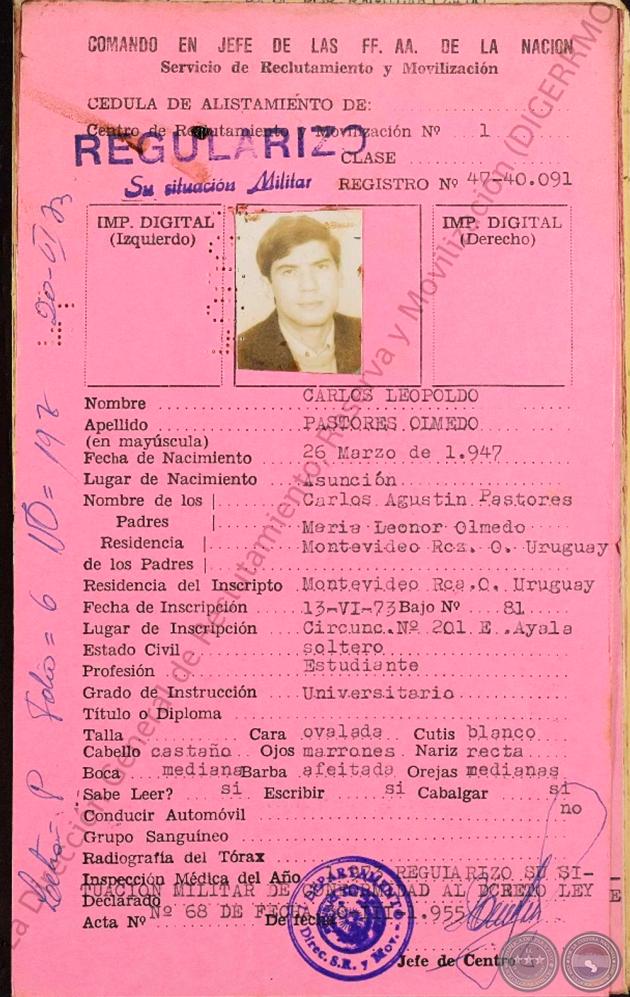 COMANDO EN JEFE DE LAS FF. AA. DE LA NACION
Servicio de Reclutamiento y Movilización
CEDULA DE ALISTAMIENTO DE:
Centro de Reclutamiento y Movilización Nº 1
REGULARIZO
CLASE
Su situación Militar
REGISTRO Nº 47-40.091
IMP. DIGITAL
(Izquierdo)
IMP. DIGITAL
(Derecho)
Nombre CARLOS LEOPOLDO
Apellido PASTORES OLMEDO
(en mayúscula)
Fecha de Nacimiento 26 Marzo de 1.947
Lugar de Nacimiento Asunción
Nombre de los Carlos Agustin Pastores
Padres Maria Leonor Olmedo
Residencia Montevideo Rca. O. Uruguay
de los Padres
Residencia del Inscripto Montevideo Rca.O. Uruguay
Fecha de Inscripción 13-VI-73 Bajo Nº 81
Lugar de Inscripción Circunc.Nº 201 E. Ayala
Estado Civil soltero
Profesión Estudiante
Grado de Instrucción Universitario
Título o Diploma
Talla Cara ovalada Cutis blanco
Cabello castaño Ojos marrones Nariz recta
Boca mediana Barba afeitada Orejas medianas
Sabe Leer? si Escribir si Cabalgar si
Conducir Automóvil no
Grupo Sanguíneo
Radiografía del Tórax
Inspección Médica del Año REGULARIZO SU SI-
TUACION MILITAR DE CONFORMIDAD AL DCRETO LEY
Declarado
Nº 68 DE FECHA III-1.955
Acta Nº De fecha
Jefe de Centro
DEPARTAMENTO
Direc. S.R. y Mov.
Folio = 6
20-VI-73
La Dirección General de Reclutamiento, Reserva y Movilización (DIGERRMO